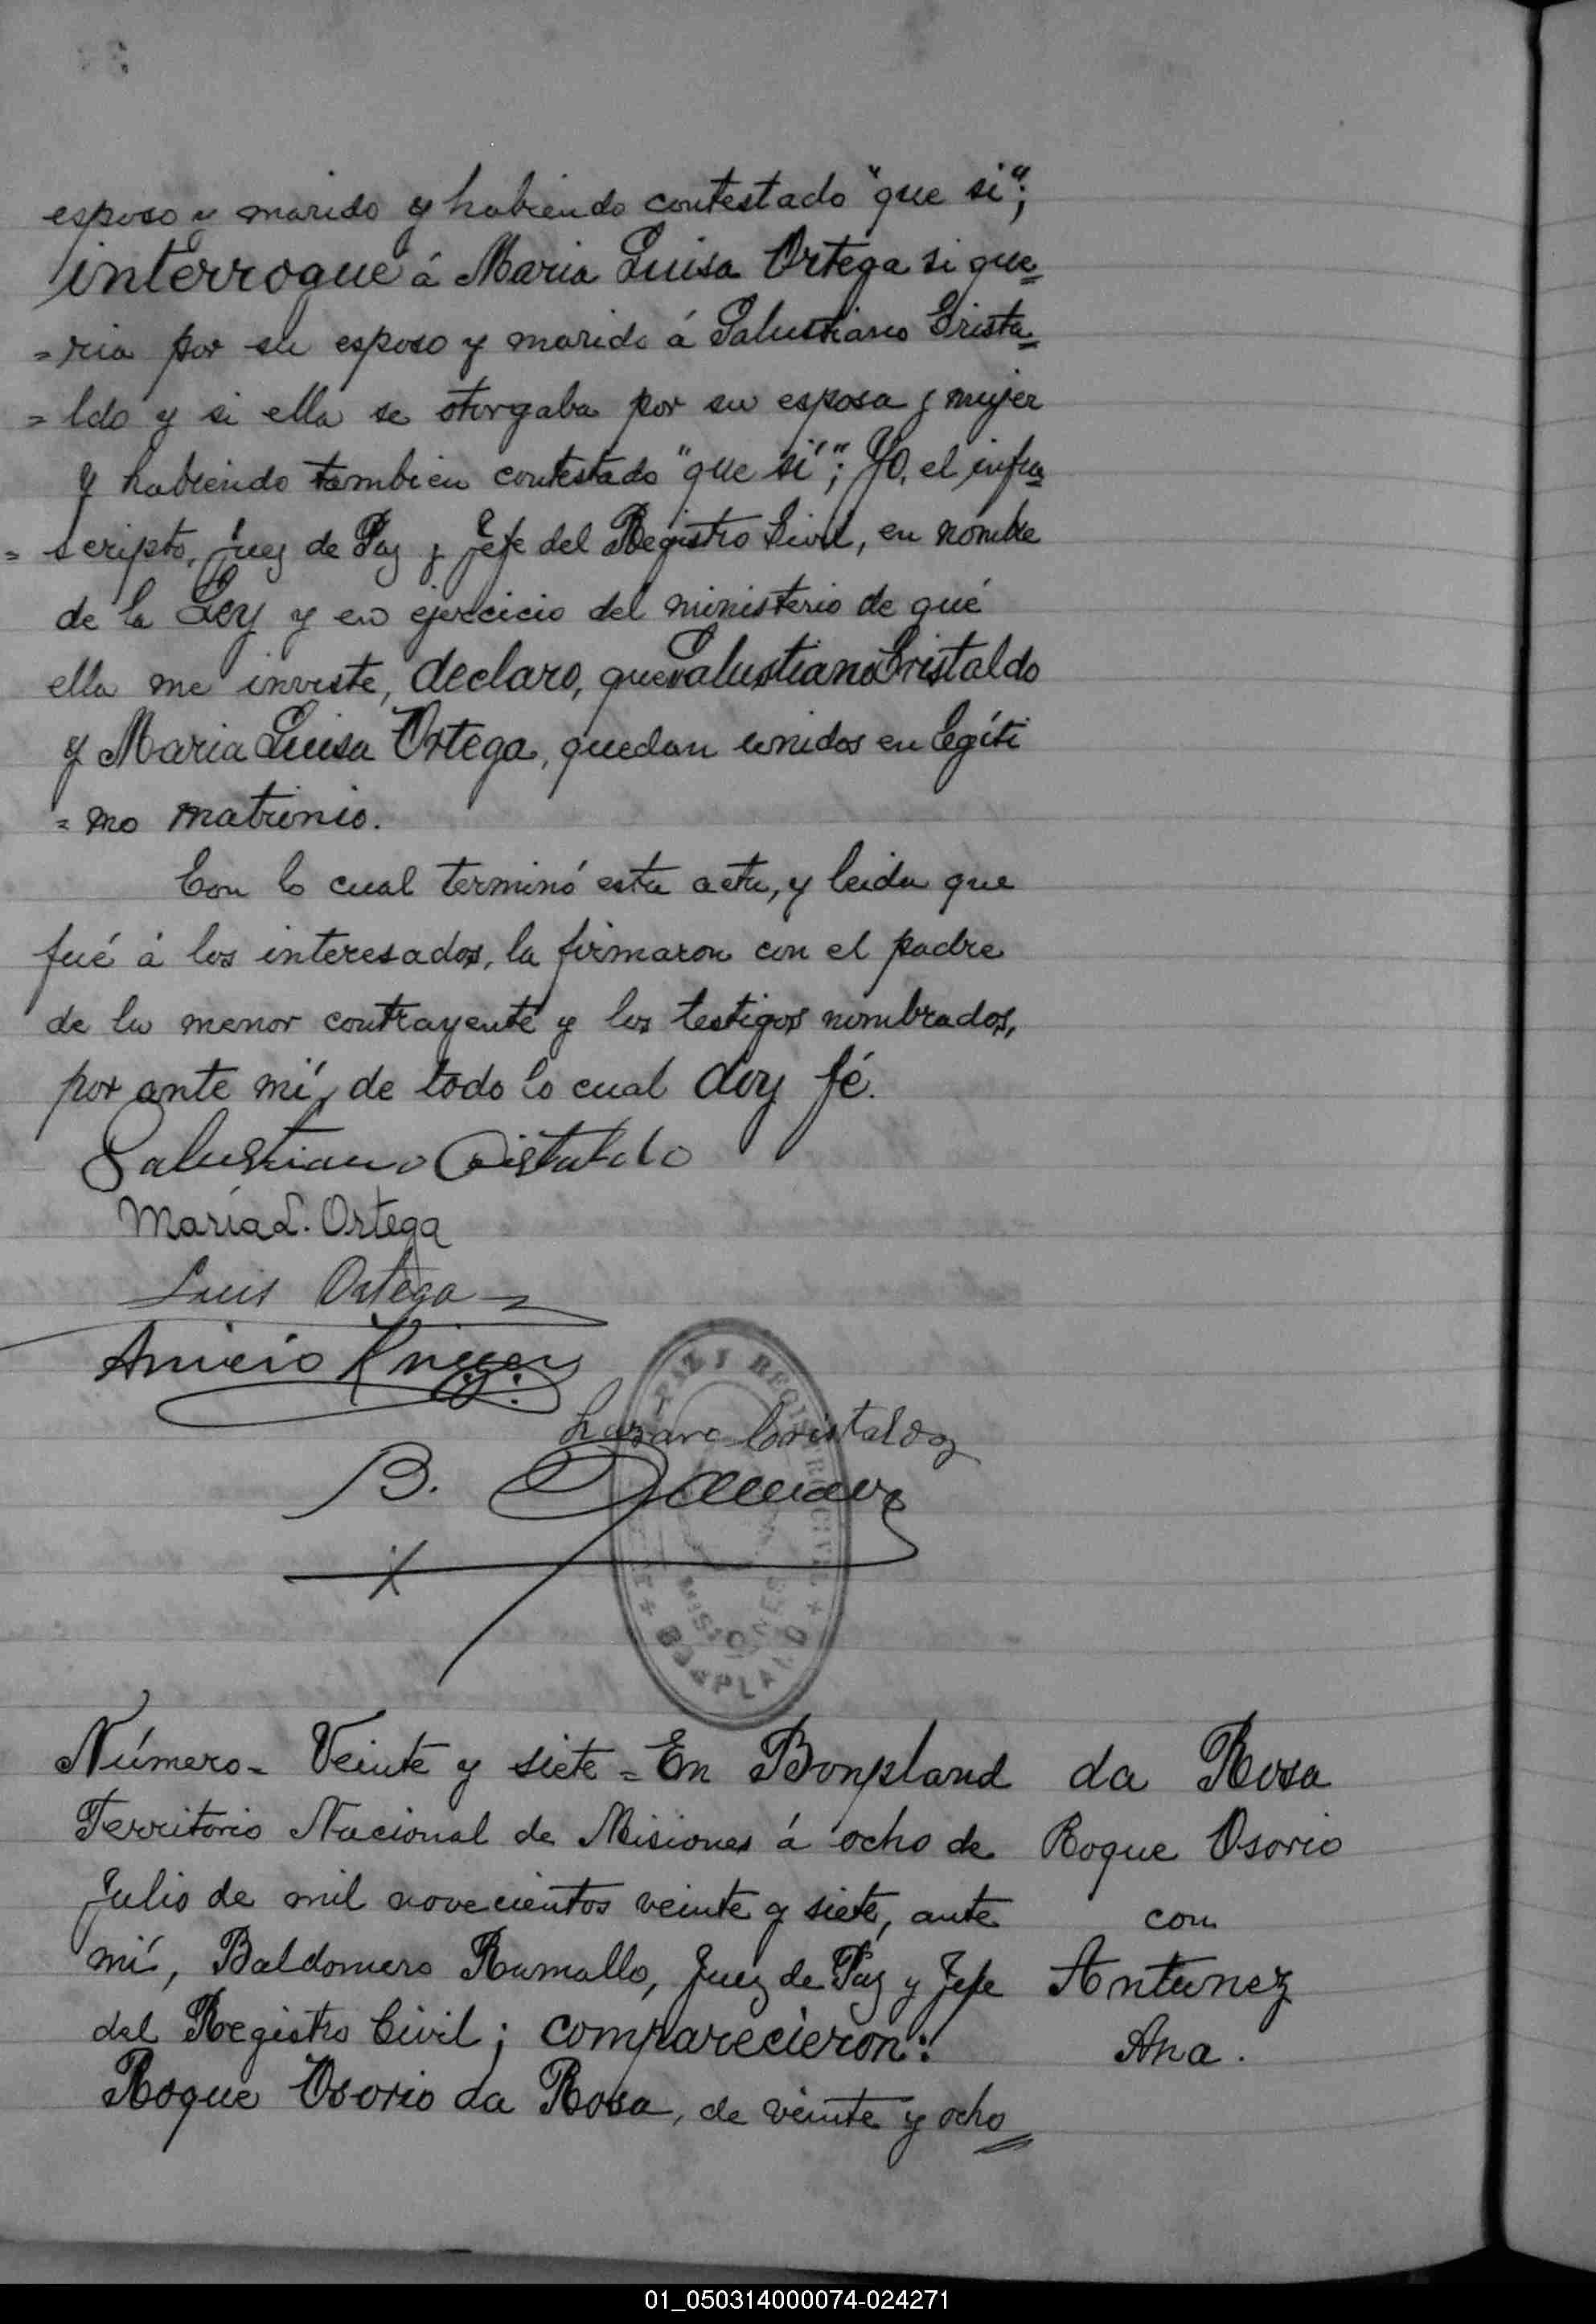 esposo y marido y habiendo contestado "que si";
interrogue á Maria Luisa Ortega si que=
=ria por su esposo y marido á Salustiano Crista=
=ldo y si ella se otorgaba por su esposa y mujer
y habiendo tambien contestado "que si"; Yo, el infra=
=scripto, Juez de Paz y Jefe del Registro Civil, en nombre
de la Ley y en ejercicio del ministerio de qué
ella me inviste, declaro, que Salustiano Cristaldo
y Maria Luisa Ortega, quedan unidos en legíti
=mo matrinio.
Con lo cual terminó esta acta, y leida que
fué á los interesados, la firmaron con el padre
de la menor contrayente y los testigos nombrados,
por ante mí, de todo lo cual doy fé.
Salustiano Cristaldo
María L. Ortega
Luis Ortega
Anicio
Lazaro Cristaldo
B.
PAZ Y REGISTRO CIVIL
MISIONES
+ BONPLAND +
Número - Veinte y siete = En Bonpland
Territorio Nacional de Misiones á ocho de
Julio de mil novecientos veinte y siete, ante
mí, Baldomero Ramallo, Juez de Paz y Jefe
del Registro Civil; comparecieron:
Roque Osorio da Rosa, de veinte y ocho
da Rosa
Roque Osorio
con
Antunez
Ana.
01_050314000074-024271